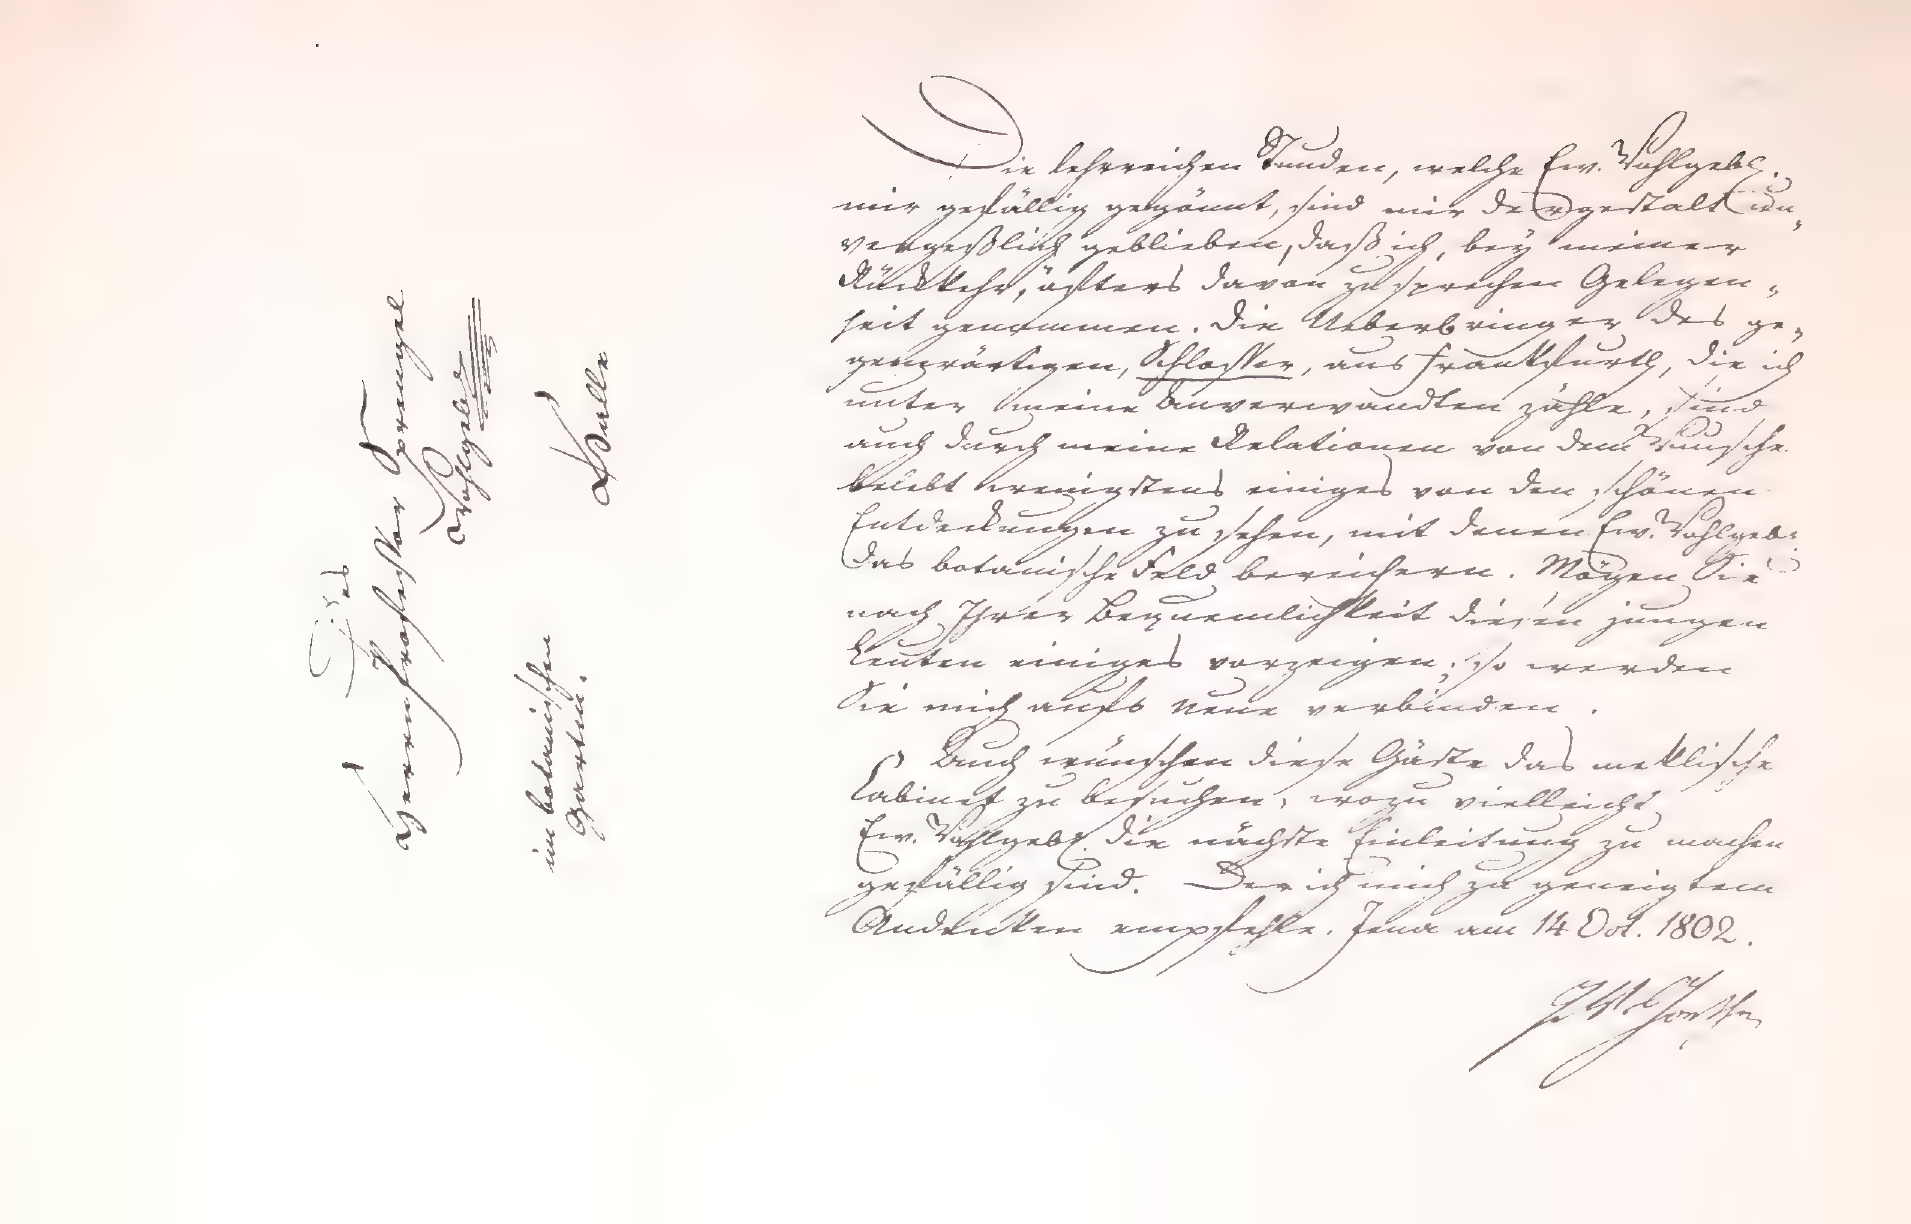 Des
Herrn Professor Sprengel
Wohlgeb.
im botanischen
Garten.
Halle
Die lehrreichen Stunden, welche Ew. Wohlgeb.
mir gefällig gegönnt, sind mir dergestalt un-
vergeßlich geblieben, daß ich, bey meiner
Rückkehr, öfters davon zu sprechen Gelegen-
heit genommen. Die Ueberbringer des ge-
genwärtigen, Schlosser, aus Frankfurth, die ich
unter meine Anverwandten zähle, sind
auch durch meine Relationen von dem Wunsche
belebt wenigstens einiges von den schönen
Entdeckungen zu sehen, mit denen Ew. Wohlgeb.
das botanische Feld bereichern. Mögen Sie
nach Ihrer Bequemlichkeit diesen jungen
Leuten einiges vorzeigen; so werden
Sie mich aufs neue verbinden.
Auch wünschen diese Gäste das meklische
Cabinet zu besuchen, wozu vielleicht
Ew. Wohlgeb. die nächste Einleitung zu machen
gefällig sind. Der ich mich zu geneigtem
Andenken empfehle. Jena am 14 Oct. 1802.
J. W. v. Goethe